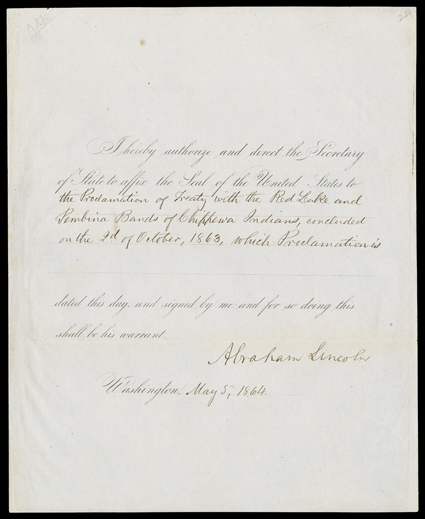 I hereby authorize and direct the Secretary
of State to affix the Seal of the United States to
the Proclamation of Treaty with the Red Lake and
Pembina Bands of Chippewa Indians, concluded
on the 2d of October, 1863, which Proclamation is
dated this day, and signed by me and for so doing this
shall be his warrant.
Abraham Lincoln
Washington, May 5, 1864.